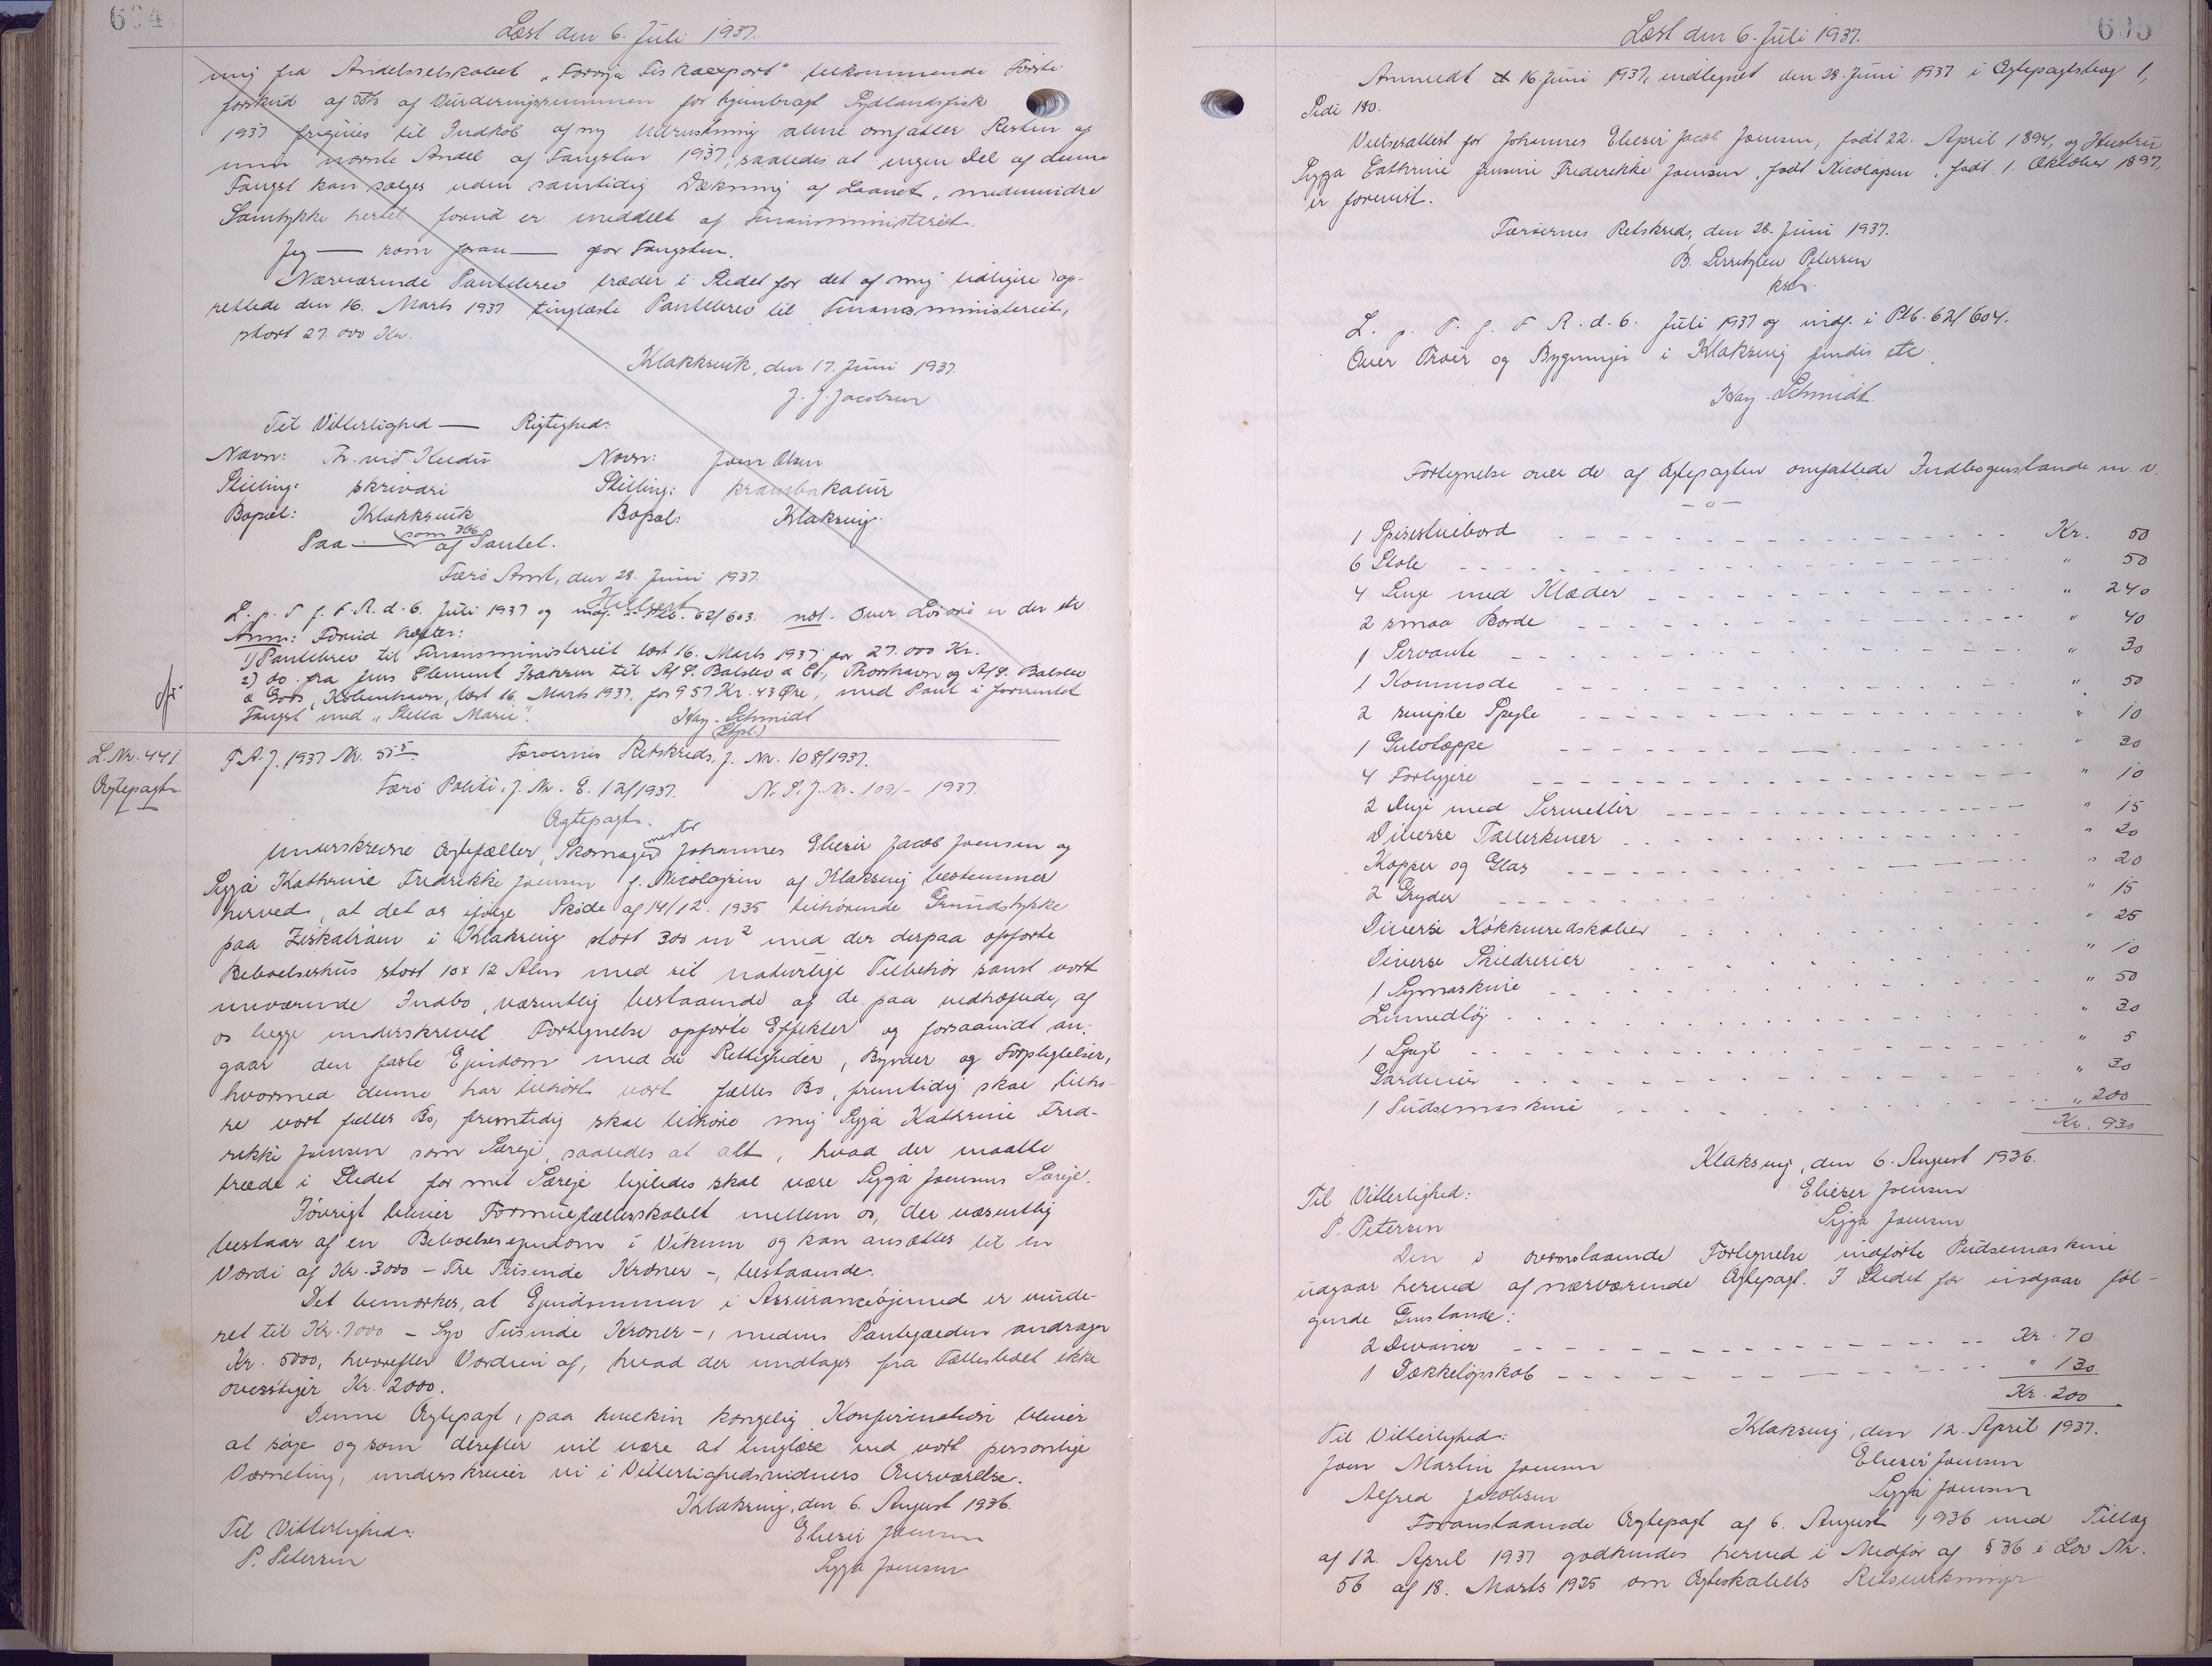 604
Læst den 6. Juli 1937.
mig fra Andelsselskabet "Føroyja Fiskaexport" tilkommende Første
forskud af 50% af Vurderingssummen for hjembragt Sydlandsfisk
1937 frigives til Indkøb af ny Udrustning alene omfatter Resten af
min norske Andel af Fangsten 1937, saaledes at ingen Del af denne
Fangst kan sælges uden samtidig Dækning af Laanet, medmindre
Samtykke hertil forud er meddelt af Finansministeriet.
Jeg — som foran — for Fangsten.
Nærværende Pantebrev træder i Stedet for det af mig tidligere op-
rettede den 16. Marts 1937 tinglæste Pantebrev til Finansministeriet,
stort 27.000 Kr.
Klakksvik, den 17. Juni 1937.
J. J. Jacobsen
Til Vitterlighed — Rigtighed:
Navn: Navn: Joen Olsen
Stilling: skrivari Stilling:
Bopæl: Klakksvik Bopæl: Klaksvig.
Paa — som 366 af Pantel.
Færø Amt, den 28. Juni 1937.
L. p. T. f. F. R. d. 6. Juli 1937 og indf. i Ptb. 62/603. not. Over er der etc
Anm: Forud hæfter:
1) Pantebrev til Finansministeriet læst 16. Marts 1937 for 27.000 Kr.
2) do. fra Jens Clement Isaksen til A/S. Balslev & Co., Thorshavn og A/S. Balslev
& København, læst 16. Marts 1937, for 957 Kr. 43 Øre, med Pant i forventet
Fangst med "Stella Marie".
Kay-Schmidt
L. Nr. 441.
Ægtepagt.
F. A. J. 1937 Nr. Færøernes Retskreds, J. Nr. 108/1937.
Færø Politi, J. Nr. E. 12/1937. N. S. J. Nr. 109/- 1937.
Ægtepagt.
Underskrevne Ægtefæller, Skomagermester Johannes Elieser Jacob Joensen og
Sigga Kathrine Fredrikke Joensen f. Nicolajsen af Klaksvig bestemmer
herved, at det os ifølge Skøde af 14/12. 1935 tilhørende Grundstykke
paa i Klaksvig stort 300 m² med der derpaa opførte
Beboelseshus stort 10x12 Alen med sit naturlige Tilbehør samt vort
inværende Indbo, væsentlig bestaaende af de paa vedhæftede, af
os begge underskrevet Fortegnelse opførte Effekter og forsaavidt an-
gaar den faste Ejendom med de Rettigheder, Byrder og Forpligtelser,
hvormed denne har tilhørt vort fælles Bo, fremtidig skal tilhø-
re vort fælles Bo, fremtidig skal tilhøre mig Sigga Kathrine Fred-
rikke Joensen som Særeje, saaledes at alt, hvad der maatte
træde i Stedet for mit Særeje ligeledes skal være Sigga Joensens Særeje.
Iøvrigt bliver Formuefællesskabet mellem os, der væsentlig
bestaar af en Beboelsesejendom i Vikum og kan ansættes til en
Værdi af Kr. 3000 - Tre Tusinde Kroner -, bestaaende.
Det bemærkes, at Ejendommen i Assuranceøjemed er vurde-
ret til Kr. 7000 - Syv Tusinde Kroner -, medens Pantegælden andrager
Kr. 5000, hvorefter Værdien af, hvad der undtages fra Fællesboet ikke
overstiger Kr. 2000.
Denne Ægtepagt, paa hvilken kongelig Konfirmation bliver
at søge og som derefter vil være at tinglæse ved vort personlige
Værneting, underskriver vi i Vitterlighedsvidners Overværelse.
Klaksvig, den 6. August 1936.
Til Vitterlighed: Elieser Joensen
P. Petersen Sigga Joensen
605
Læst den 6. Juli 1937.
Anmeldt 16 Juni 1937, indtegnet den 28. Juni 1937 i Ægtepagtsbog 1,
Side 180.
Vielsesattest for Johannes Elieser Jacob Joensen, født 22. April 1894, og Hustru
Sigga Cathrine Jensine Frederikke Joensen, født Nicolajsen, født 1. Oktober 1897,
er forevist.
Færøernes Retskreds, den 28. Juni 1937.
B. Petersen
kst.
L. p. T. f. F. R. d. 6. Juli 1937 og indf. i Ptb. 62/604.
Over Træer og Bygninger i Klaksvig findes etc.
Kay-Schmidt
Fortegnelse over de af Ægtepagten omfattede Indbogenstande m. v.
-o-
1 Spisestuebord Kr. 50
6 Stole " 50
4 Senge med Klæder " 240
2 smaa Borde " 40
1 Servante " 30
1 Kommode " 50
2 simple Spejle " 10
1 Gulvtæppe " 30
4 Forliggere " 10
2 Duge med Servietter " 15
Diverse Tallerkener " 20
Kopper og Glas " 20
2 Gryder " 15
Diverse Køkkenredskaber " 25
Diverse Skilderier " 10
1 Symaskine " 50
Linnedtøj " 30
1 Spejl " 5
Gardiner " 30
1 Pudsemaskine " 200
Kr. 930
Klaksvig, den 6. August 1936.
Til Vitterlighed: Elieser Joensen
P. Petersen Sigga Joensen
Den i ovenstaaende Fortegnelse indførte Pudsemaskine
udgaar herved af nærværende Ægtepagt. I Stedet for indgaar føl-
gende Genstande:
2 Divaner Kr. 70
1 Dækketøjsskab " 130
Kr. 200
Klaksvig, den 12. April 1937.
Til Vitterlighed:
Joen Martin Joensen Elieser Joensen
Alfred Jacobsen Sigga Joensen
Foranstaaende Ægtepagt af 6. August 1936 med Tillæg
af 12. April 1937 godkendes herved i Medfør af § 36 i Lov Nr.
56 af 18. Marts 1925 om Ægteskabets Retsvirkninger